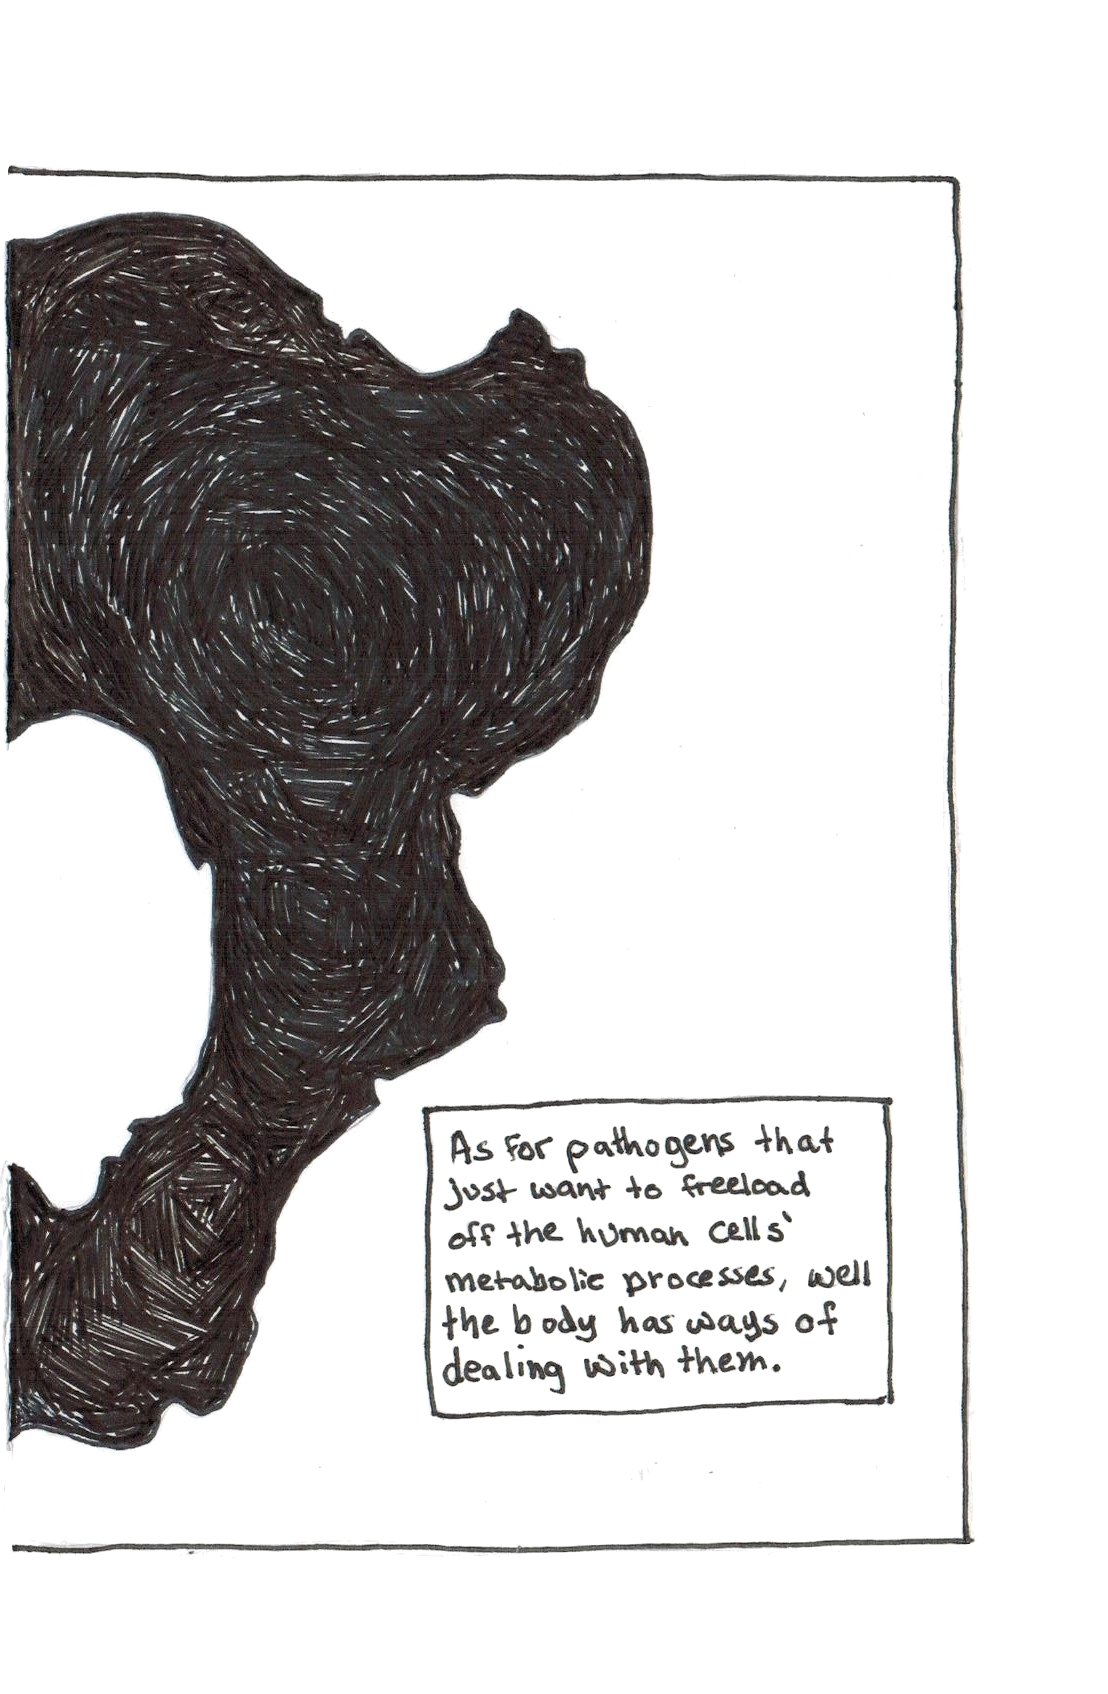 As for pathogens that
just want to freeload
off the human cells'
metabolic processes, well
the body has ways of
dealing with them.